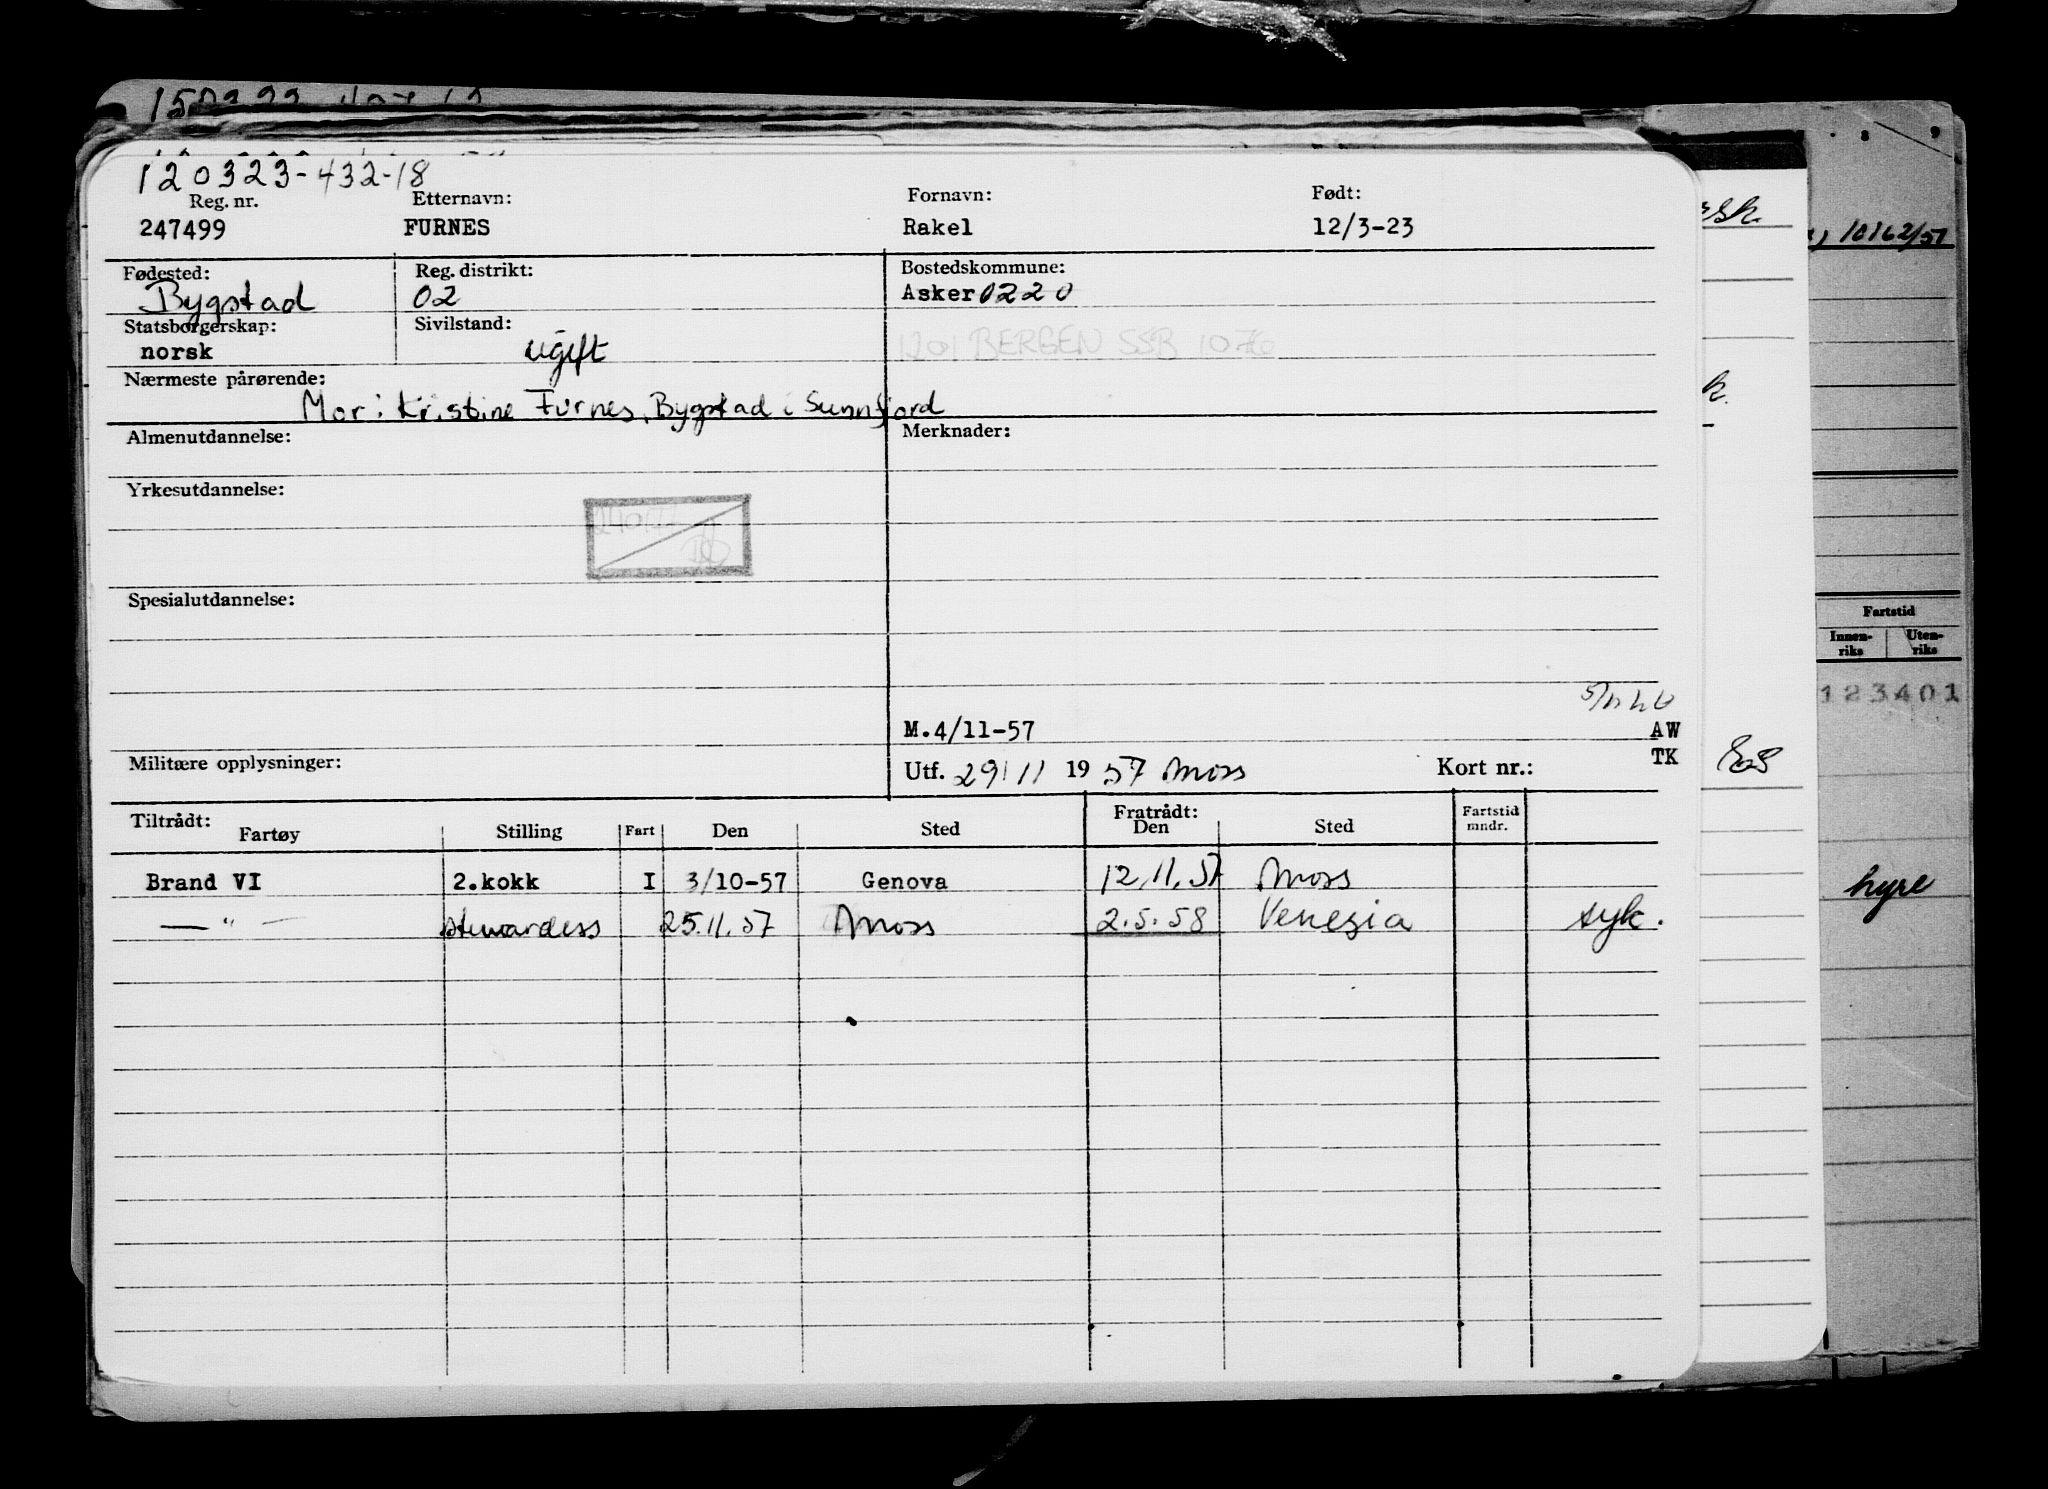 120323-432-18
Reg. nr. Etternavn: Fornavn: Født:
247499 FURNES Rakel 12/3-23
Fødested: Reg. distrikt: Bostedskommune:
Bygstad 02 Asker 0220
Statsborgerskap: Sivilstand:
norsk ugift 1201 BERGEN SSB 1076
Nærmeste pårørende:
Mor: Kristine Furnes, Bygstad i Sunnfjord
Almenutdannelse: Merknader:
Yrkesutdannelse:
Spesialutdannelse:
M.4/11-57 AW
Militære opplysninger: Utf. 29/11 1957 Moss Kort nr.: TK
Tiltrådt: Fratrådt: Fartstid
Fartøy Stilling Fart Den Sted Den Sted mndr.
Brand VI 2.kokk I 3/10-57 Genova 12.11.57 Moss
— " — stewardess 25.11.57 Moss 2.5.58 Venezia syk.
10162/57
Fartstid
Innen-riks Uten-riks
123401
hyre